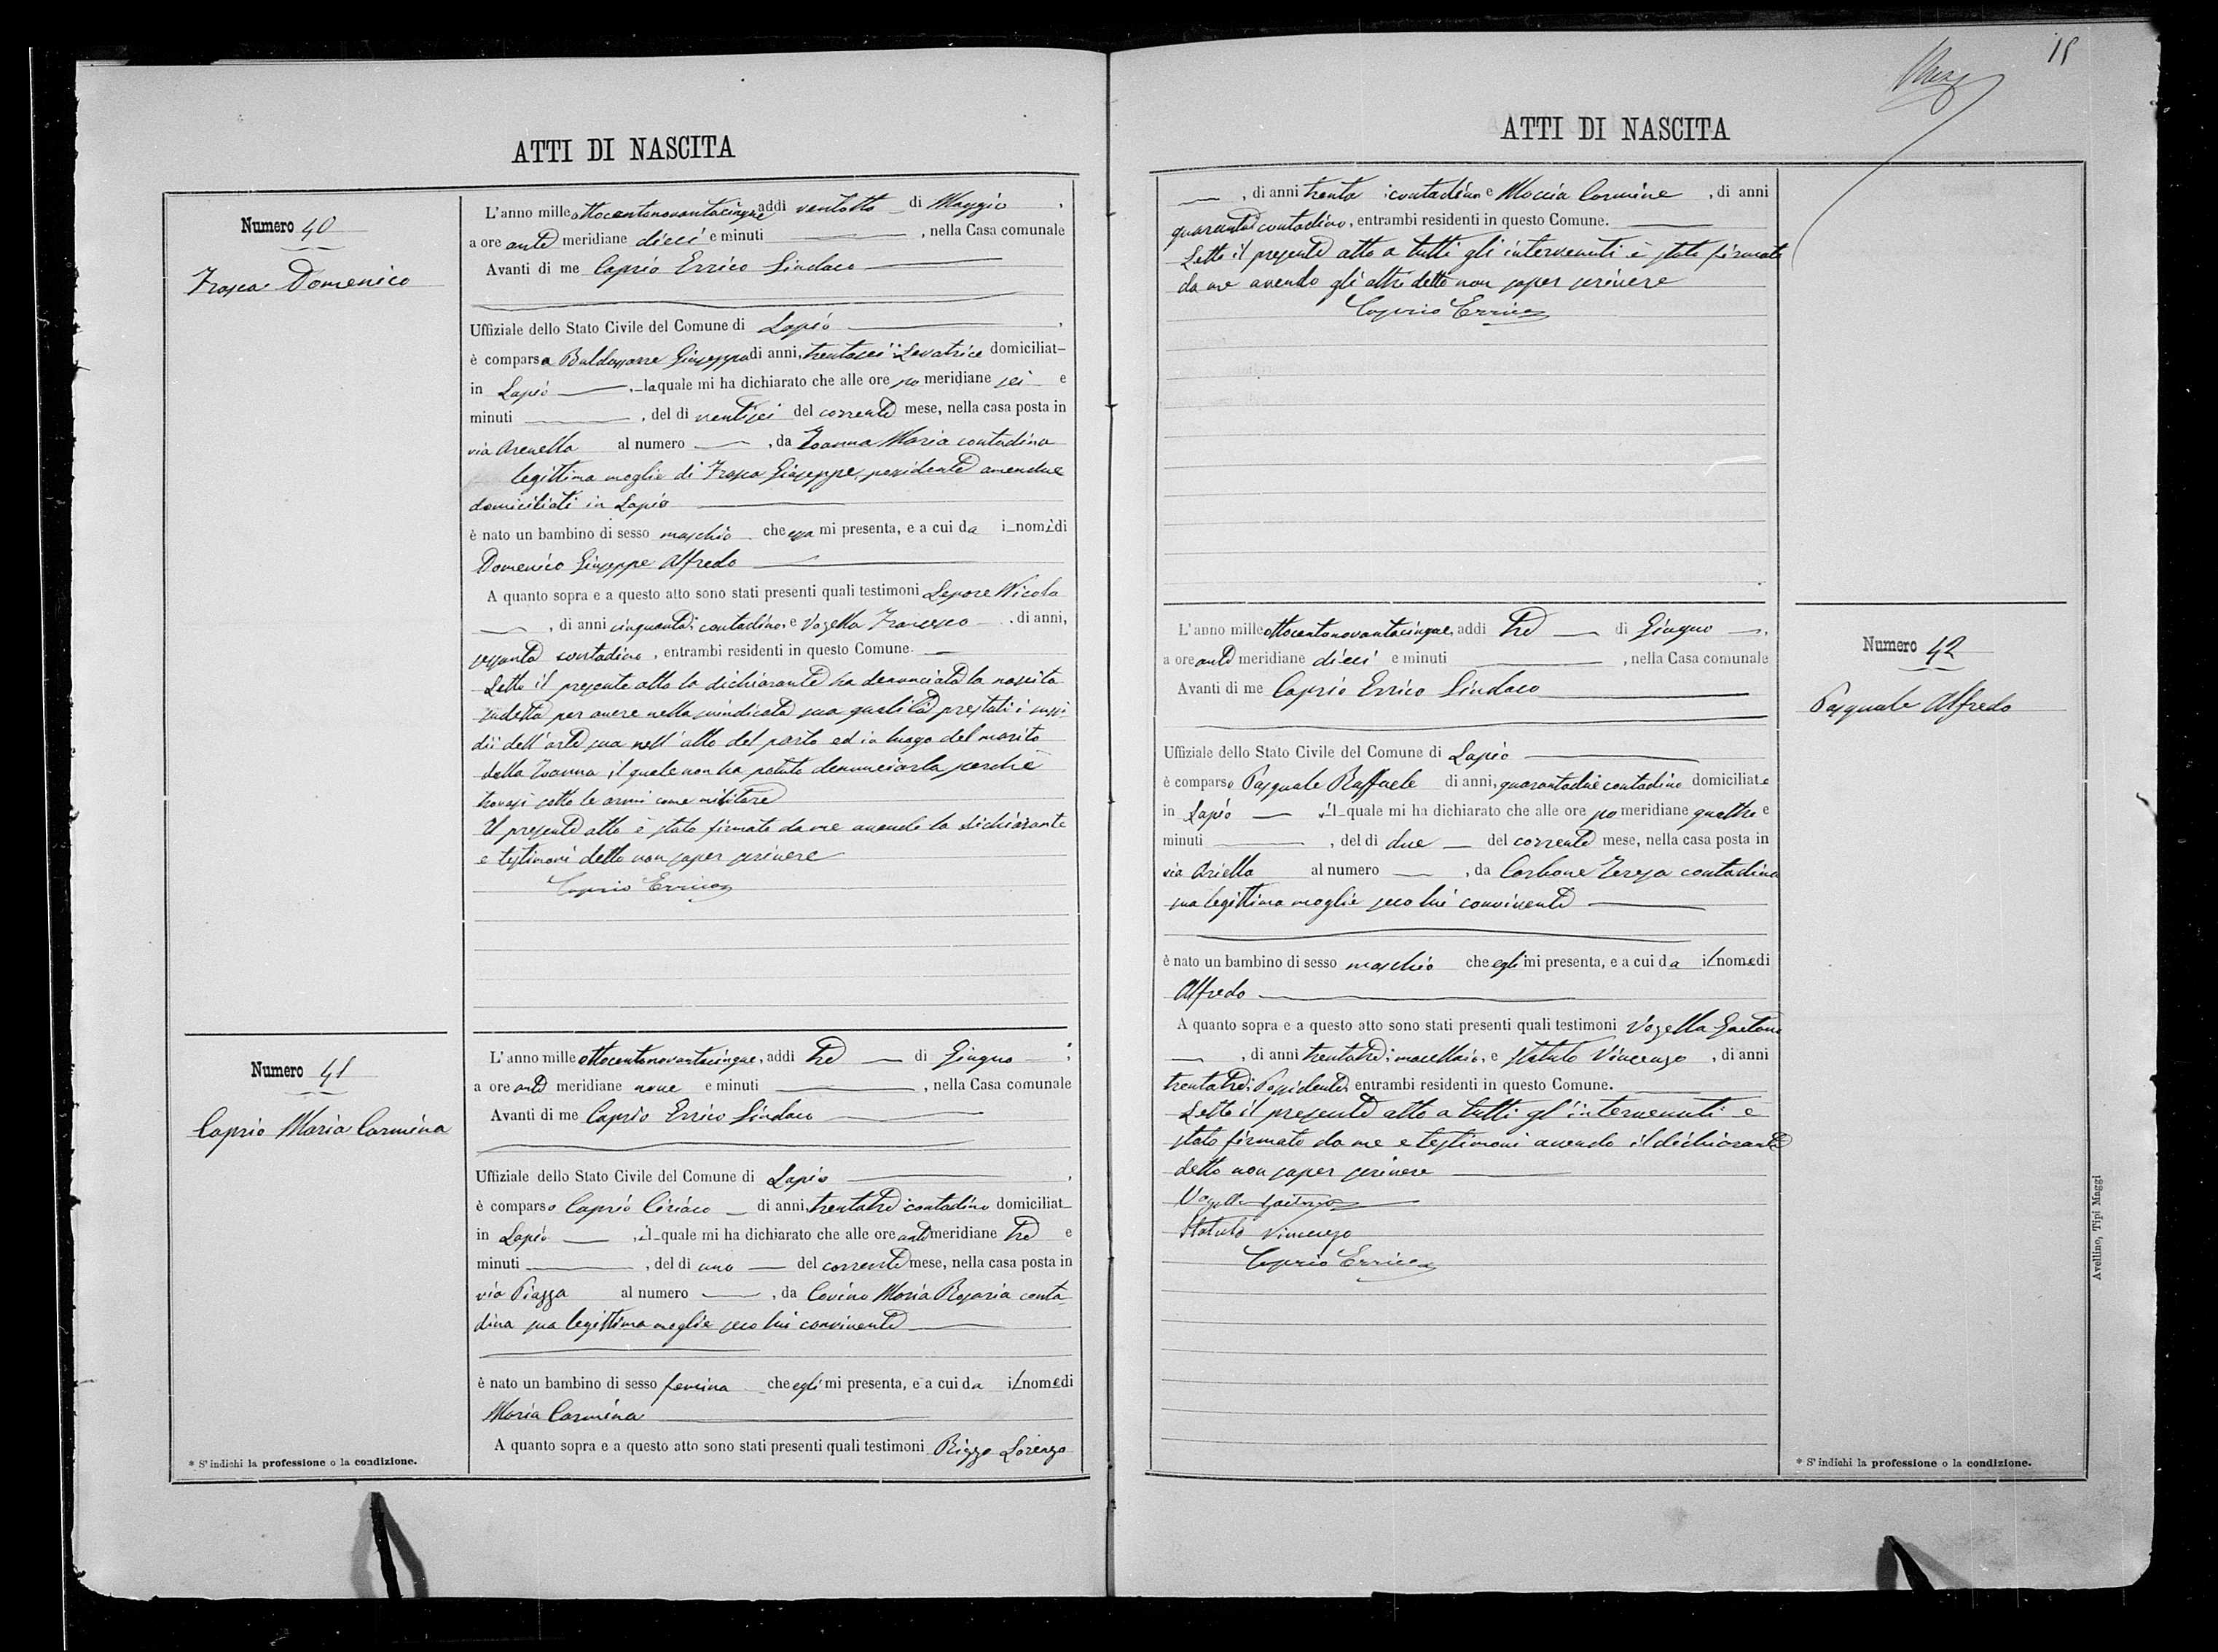 ATTI DI NASCITA
Numero 40
Frasca Domenico
L'anno mille ottocentonovantacinque addi ventotto di Maggio,
a ore ante meridiane dieci e minuti , nella Casa comunale
Avanti di me Caprio Errico Sindaco
Uffiziale dello Stato Civile del Comune di Lapio ,
è comparsa Baldassarre Giuseppa di anni, trentasei Levatrice domiciliat
in Lapio , la quale mi ha dichiarato che alle ore po meridiane sei e
minuti , del di ventisei del corrente mese, nella casa posta in
via Arenella al numero , da Ioanna Maria contadina
legittima moglie di Frasca Giuseppe, possidente amendue
domiciliati in Lapio
è nato un bambino di sesso maschio che essa mi presenta, e a cui da i nomi di
Domenico Giuseppe Alfredo
A quanto sopra e a questo atto sono stati presenti quali testimoni Lepore Nicola
, di anni cinquanta; contadino, e Vozella Francesco . di anni,
sessanta contadino, entrambi residenti in questo Comune.
Letto il presente atto la dichiarante ha denunciata la nascita
sudetta per avere nella suindicata sua qualità prestati i sussi-
dii dell'arte sua nell'atto del parto ed in luogo del marito
della Ioanna, il quale non ha potuto denunciarla perchè
trovasi sotto le armi come militare
Il presente atto è stato firmato da me avendo la dichiarante
e testimoni detto non saper scrivere
Caprio Errico
Numero 41
Caprio Maria Carmina
L'anno mille ottocentonovantacinque, addi tre di Giugno ;
a ore ante meridiane nove e minuti , nella Casa comunale
Avanti di me Caprio Errico Sindaco
Uffiziale dello Stato Civile del Comune di Lapio ,
è comparso Caprio Ciriaco di anni, trentatre contadino domiciliat
in Lapio , il quale mi ha dichiarato che alle ore ante meridiane tre e
minuti , del di uno del corrente mese, nella casa posta in
via Piazza al numero , da Covino Maria Rosaria conta-
dina sua legittima moglie seco lui convivente
è nato un bambino di sesso femina che egli mi presenta, e a cui da il nome di
Maria Carmina
A quanto sopra e a questo atto sono stati presenti quali testimoni Rizzo Lorenzo
* S' indichi la professione o la condizione.
15
ATTI DI NASCITA
, di anni trenta contadino e Moccia Carmine , di anni
quaranta contadino, entrambi residenti in questo Comune.
Letto il presente atto a tutti gli intervenuti è stato firmato
da me avendo gli altri detto non saper scrivere
Caprio Errico
Numero 42
Pasquale Alfredo
L'anno mille ottocentonovantacinque, addi tre di Giugno ,
a ore ante meridiane dieci e minuti , nella Casa comunale
Avanti di me Caprio Errico Sindaco
Uffiziale dello Stato Civile del Comune di Lapio
è comparso Pasquale Raffaele di anni, quarantadue contadino domiciliato
in Lapio il quale mi ha dichiarato che alle ore po meridiane quattro e
minuti , del di due del corrente mese, nella casa posta in
via Ariella al numero , da Carbone Teresa contadina
sua legittima moglie seco lui convivente
è nato un bambino di sesso maschio che egli mi presenta, e a cui da il nome di
Alfredo
A quanto sopra e a questo atto sono stati presenti quali testimoni Vozella Gaetano
, di anni trentatre; macellaio, e Statuto Vincenzo , di anni
trentatre; Possidente, entrambi residenti in questo Comune.
Letto il presente atto a tutti gl'intervenuti è
stato firmato da me e testimoni avendo il dichiarante
detto non saper scrivere
Vozella Gaetano
Statuto Vincenzo
Caprio Errico
* S' indichi la professione o la condizione.
Avellino, Tipi Maggi